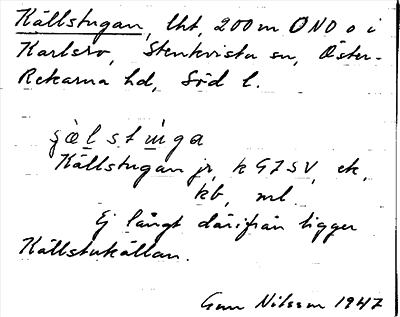 Källstugan, lht, 200 m ONO o i
Karlsro, Stenkvista sn, Öster-
Rekarne hd, Söd l.
Källstugan jr, k G7SV, ek,
kb, ml.
Ej långt därifrån ligger
Källstukällan.
Gun Nilsson 1947